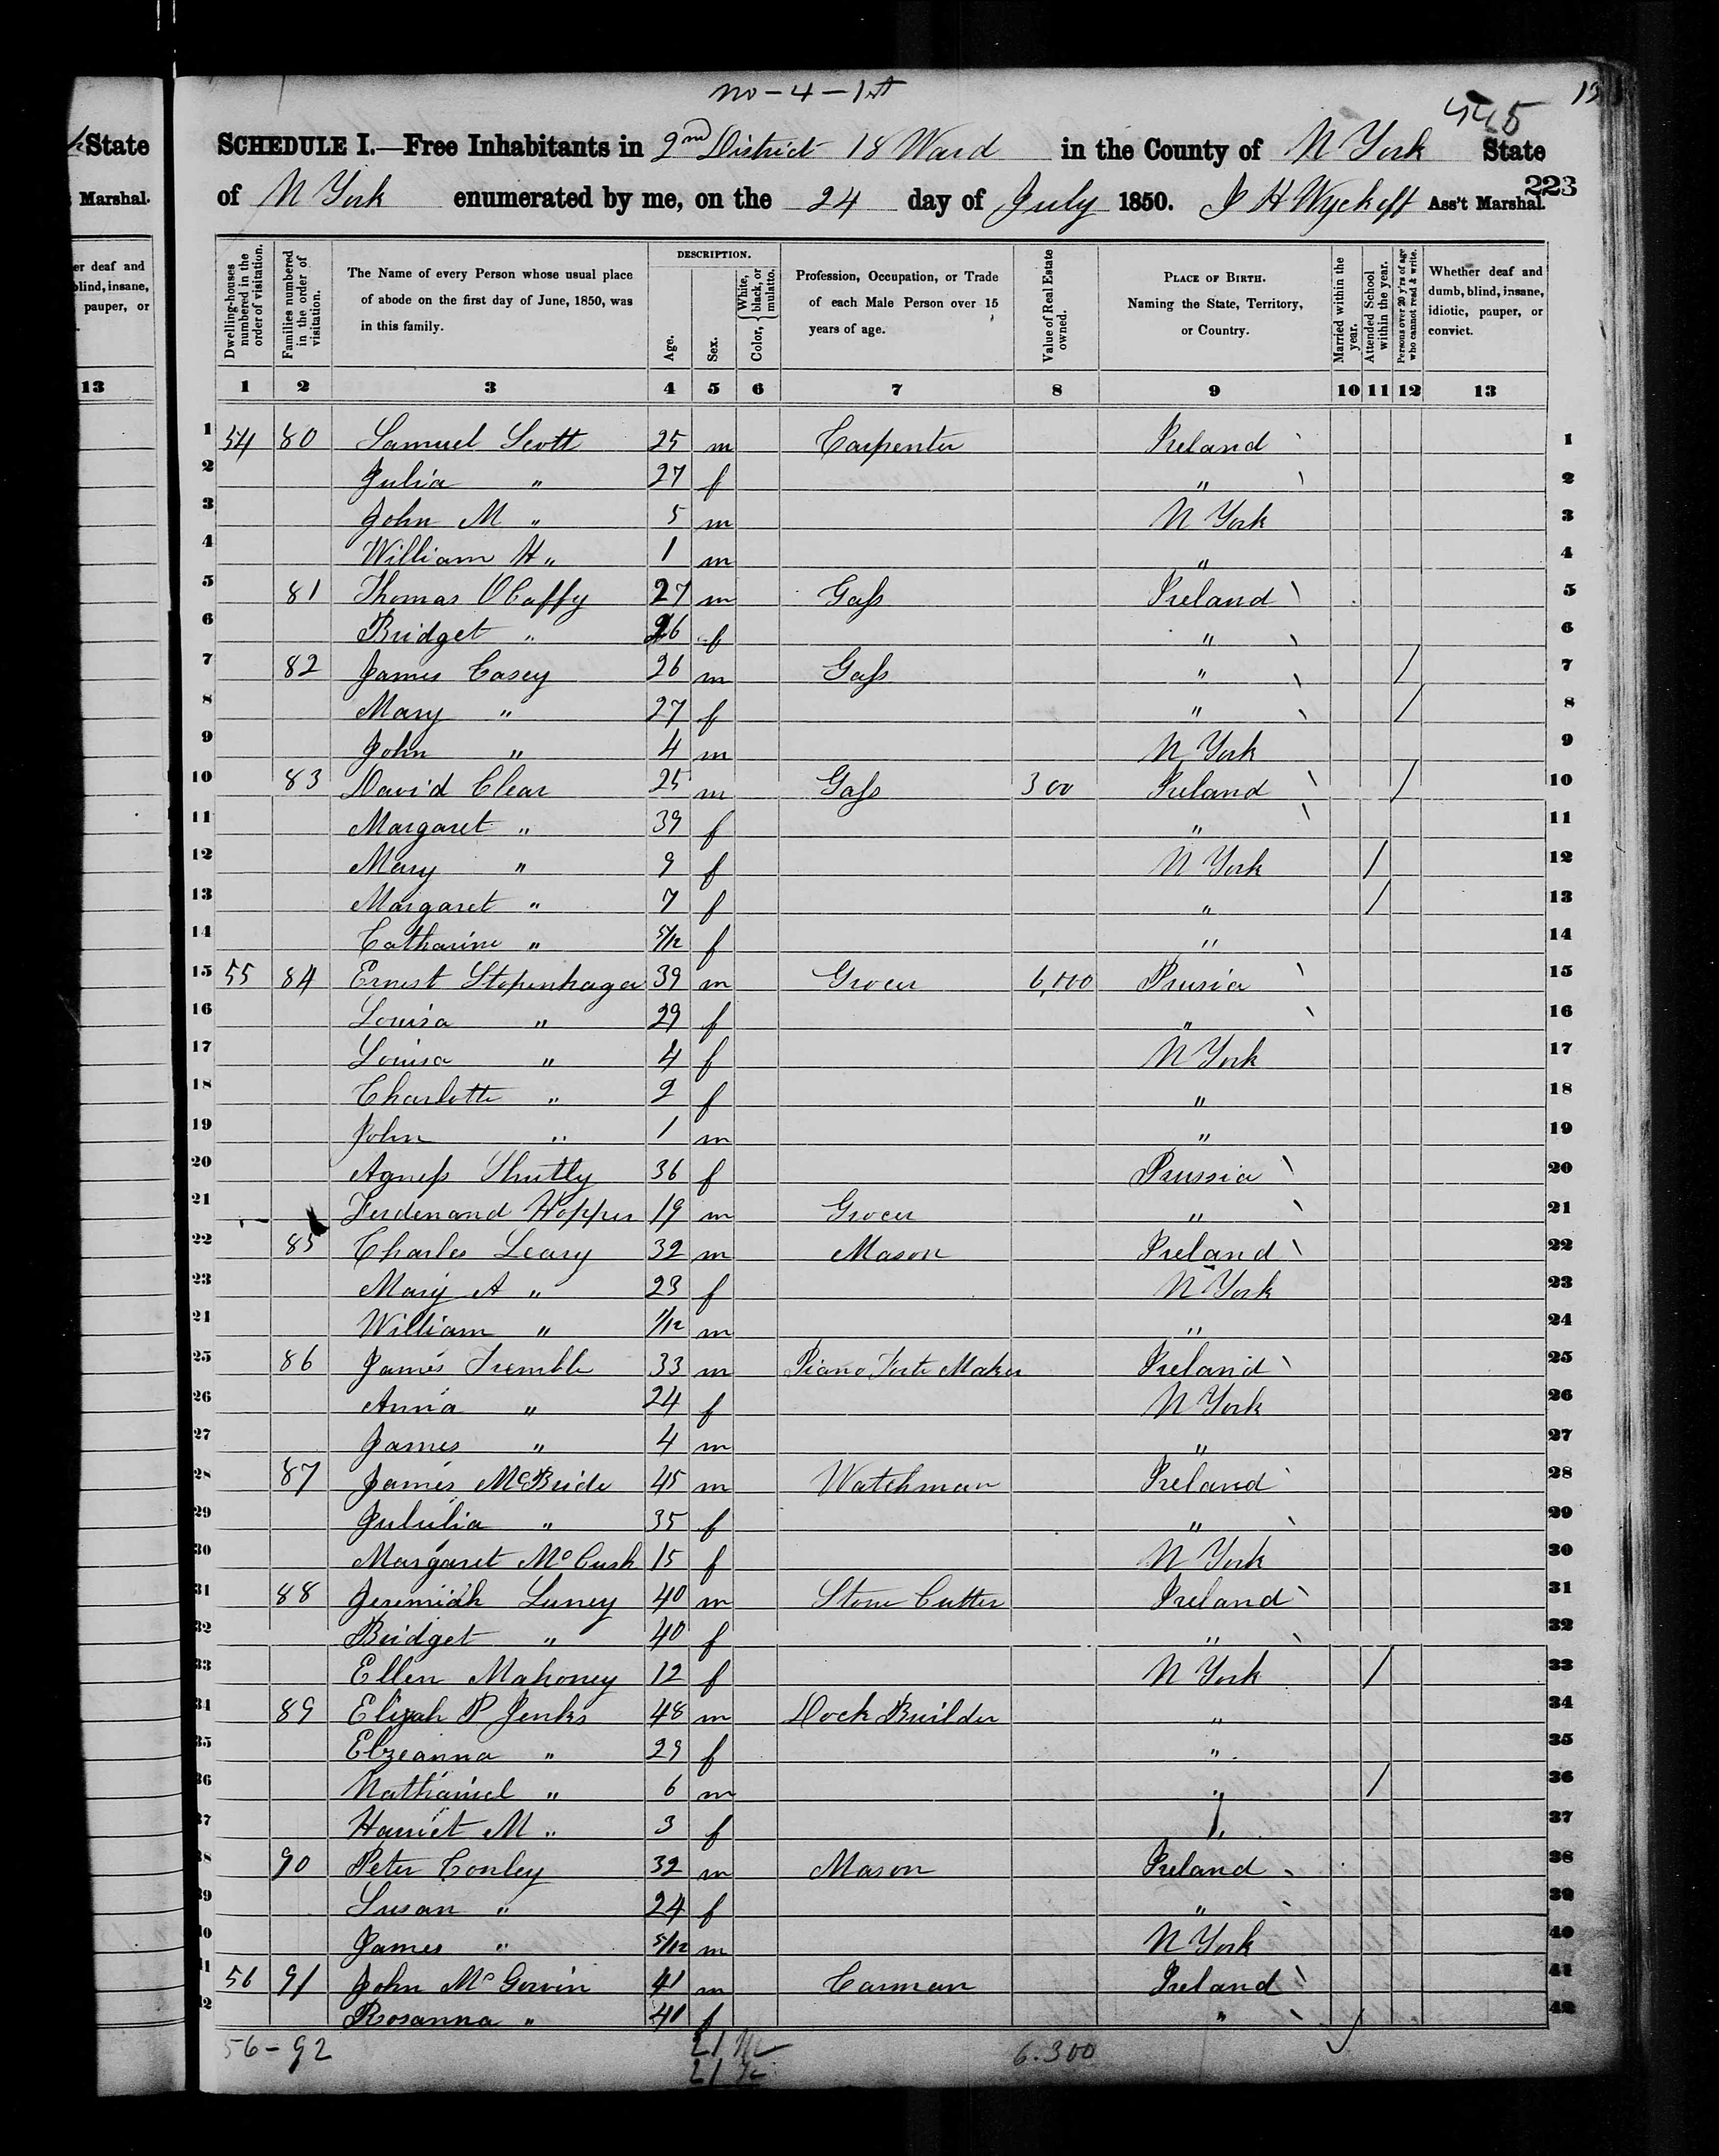 no - 4 - 1st
445
13
SCHEDULE I.—Free Inhabitants in 2nd District 18 Ward in the County of N York State
of N York enumerated by me, on the 24 day of July 1850. J H Wyckoff Ass't Marshal.
223
State
Marshal.
er deaf and
blind, insane,
pauper, or
13
Dwelling-houses numbered in the order of visitation.
Families numbered in the order of visitation.
The Name of every Person whose usual place of abode on the first day of June, 1850, was in this family.
DESCRIPTION.
Age.
Sex.
Color, { White, black, or mulatto.
Profession, Occupation, or Trade of each Male Person over 15 years of age.
Value of Real Estate owned.
PLACE OF BIRTH. Naming the State, Territory, or Country.
Married within the year.
Attended School within the year.
Persons over 20 y'rs of age who cannot read & write.
Whether deaf and dumb, blind, insane, idiotic, pauper, or convict.
1 2 3 4 5 6 7 8 9 10 11 12 13
1 54 80 Samuel Scott 25 m Carpenter Ireland 1
2 Julia " 27 f " 2
3 John M " 5 m N York 3
4 William H " 1 m " 4
5 81 Thomas OCaffy 27 m Gass Ireland 5
6 Bridget " 26 f " 6
7 82 James Casey 26 m Gass " / 7
8 Mary " 27 f " / 8
9 John " 4 m N York 9
10 83 David Clear 25 m Gass 300 Ireland / 10
11 Margaret " 39 f " 11
12 Mary " 9 f N York / 12
13 Margaret " 7 f " / 13
14 Catharine " 5/12 f " 14
15 55 84 Ernest Stopenhagen 39 m Grocer 6,000 Prusia 15
16 Louisa " 29 f " 16
17 Louisa " 4 f N York 17
18 Charlotte " 2 f " 18
19 John " 1 m " 19
20 Agness Shutly 36 f Prussia 20
21 Ferdenand Hopper 19 m Grocer " 21
22 85 Charles Leary 32 m Mason Ireland 22
23 Mary A " 23 f N York 23
24 William " 1/12 m " 24
25 86 James Tremble 33 m Piano Forte Maker Ireland 25
26 Anna " 24 f N York 26
27 James " 4 m " 27
28 87 James McBride 45 m Watchman Ireland 28
29 Jululia " 35 f " 29
30 Margaret McCusk 15 f N York 30
31 88 Jeremiah Luney 40 m Stone Cutter Ireland 31
32 Bridget " 40 f " 32
33 Ellen Mahoney 12 f N York / 33
34 89 Elijah P Jenks 48 m Dock Builder " 34
35 Elzeanna " 29 f " 35
36 Nathaniel " 6 m " / 36
37 Harriet M " 3 f " 37
38 90 Peter Conley 32 m Mason Ireland 38
39 Susan " 24 f " 39
40 James " 5/12 m N York 40
41 56 91 John McGowin 41 m Carman Ireland 41
42 Rosanna " 40 f " 42
56 - 92 21 6.300
21